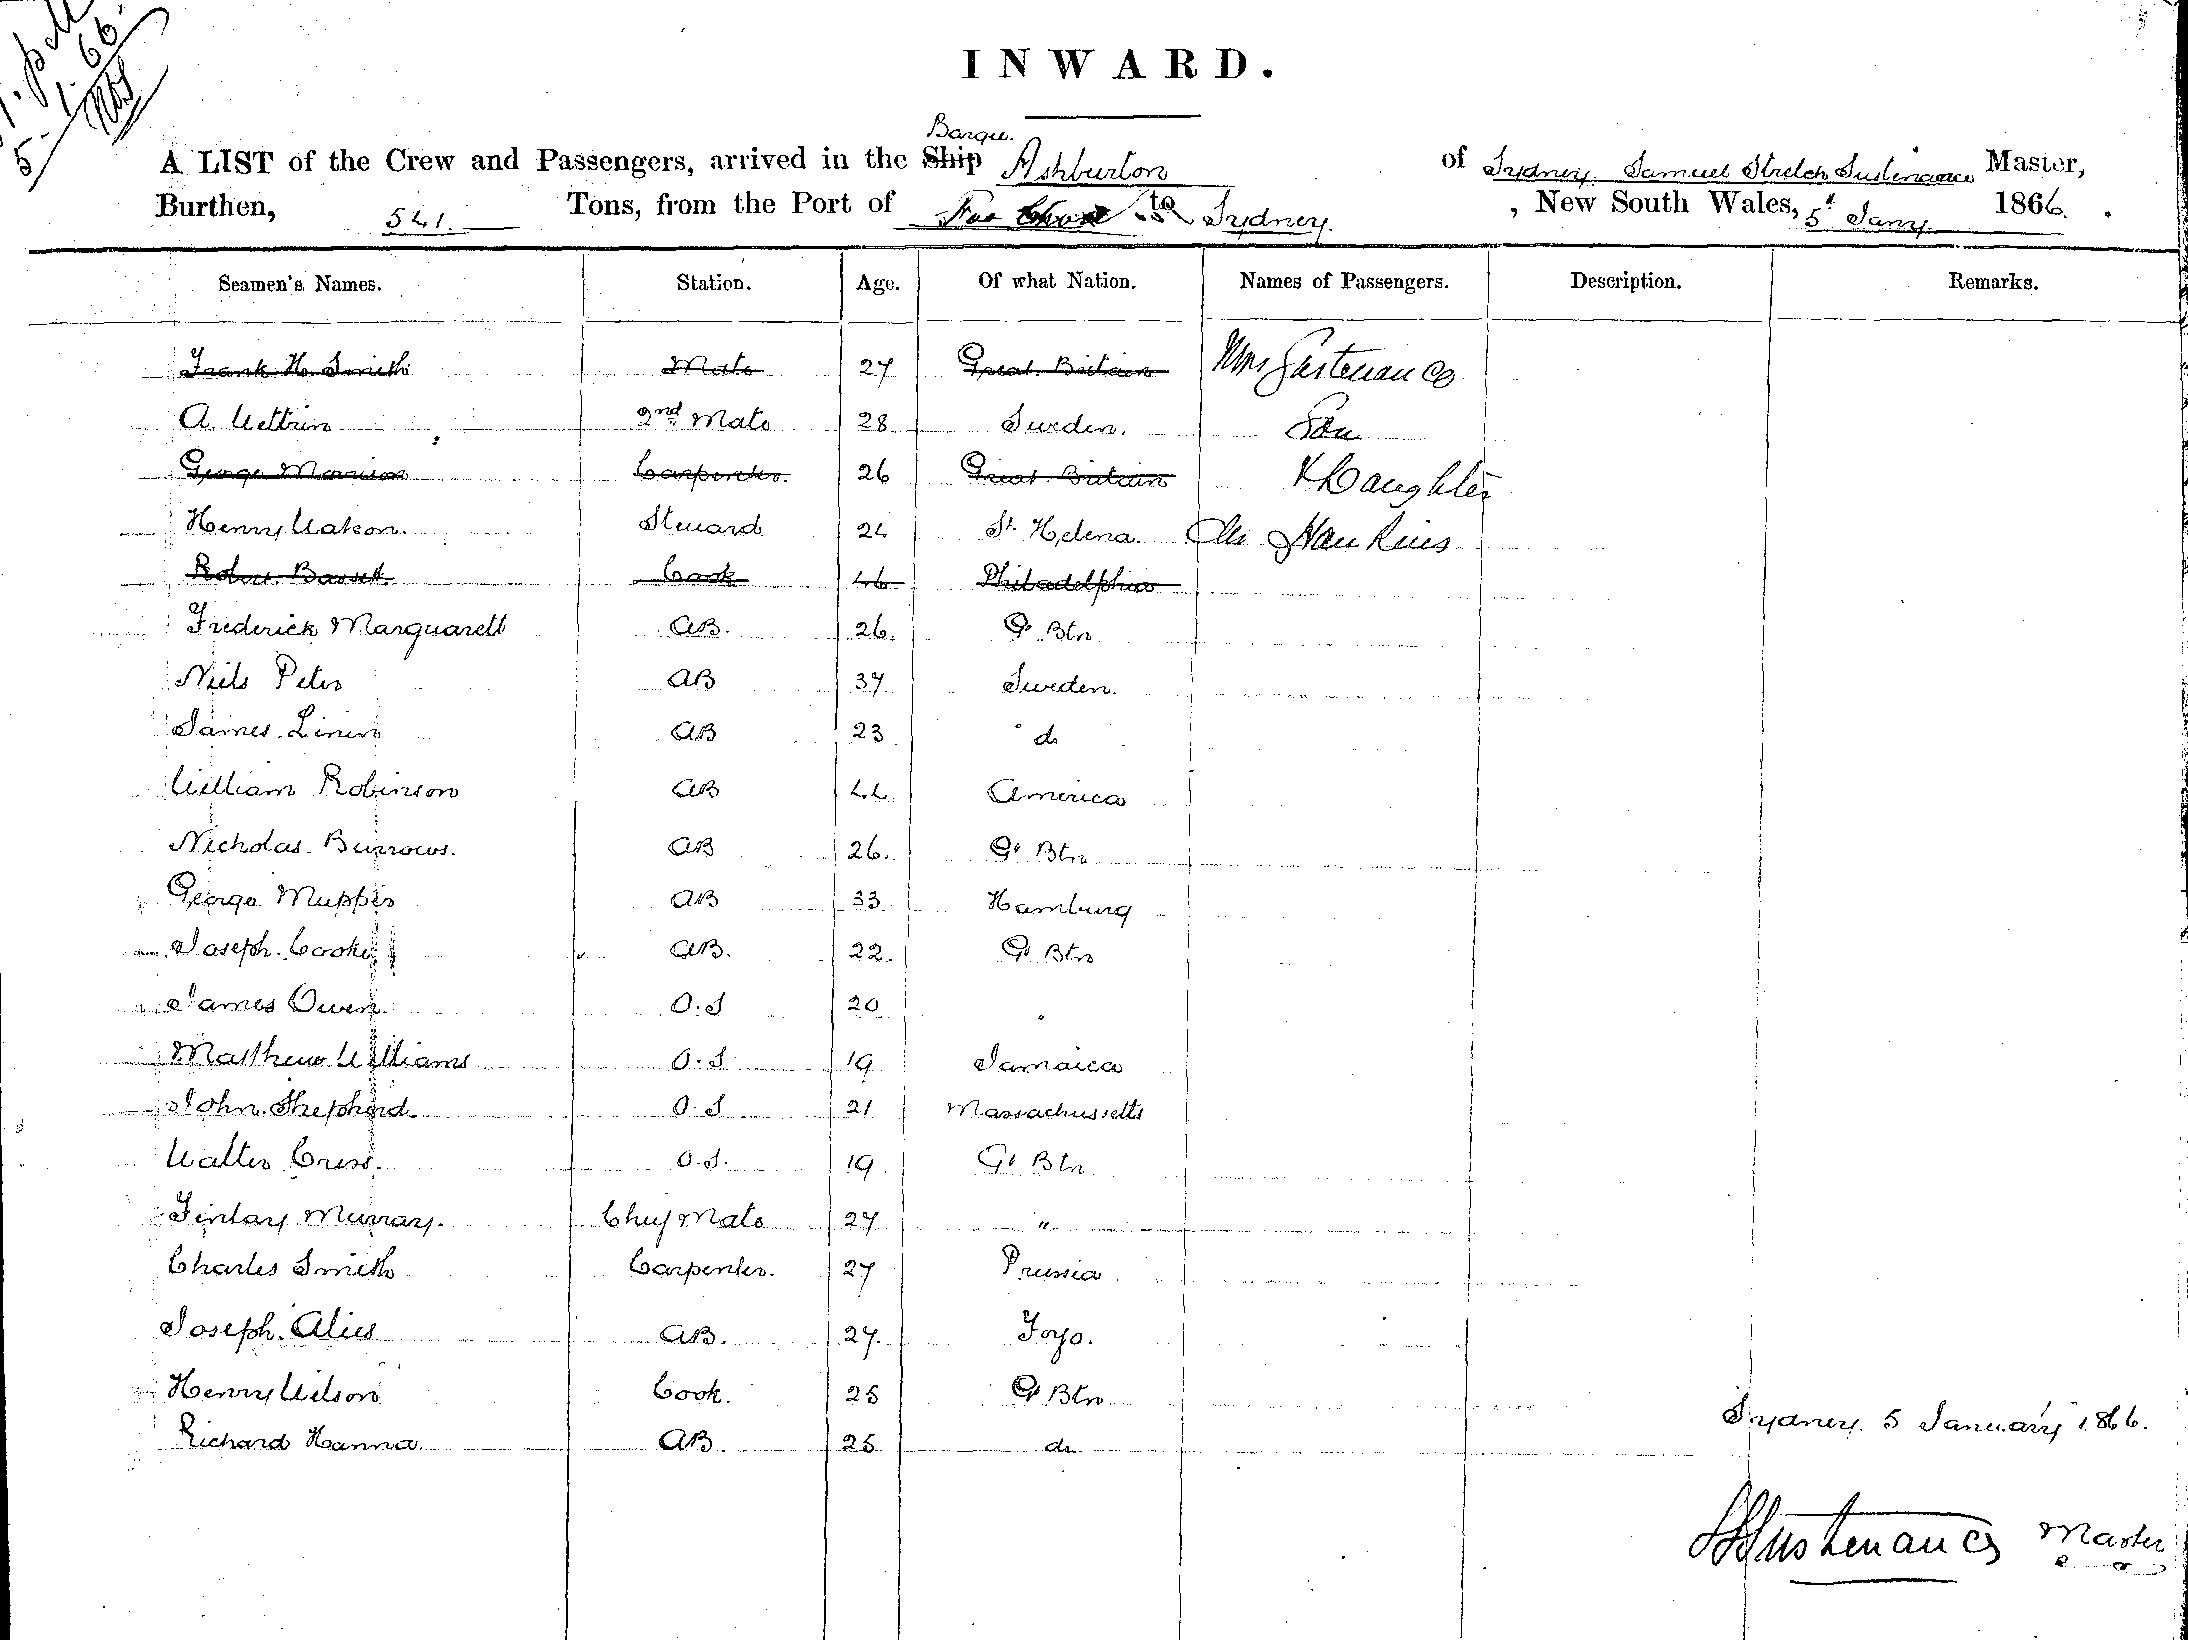 5.1.66.
INWARD.
Barque.
A LIST of the Crew and Passengers, arrived in the Ship Ashburton of Sydney Samuel Stretch Sustenance Master,
Burthen, 541. Tons, from the Port of Foo Chow to Sydney. , New South Wales, 5t Jany 1866.
Seamen's Names. Station. Age. Of what Nation. Names of Passengers. Description. Remarks.
Frank H. Smith Mate 27 Great Britain Mrs Sustenance
A. Wettrin 2nd Mate 28 Sweden. Son
George Morrison Carpenter. 26 Great Britain & Daughter
Henry Watson. Steward 24 St. Helena. Mr Hawkins
Robert Basset. Cook 46 Philadelphia
Frederick Marquarett AB. 26. Gt Btn
Niels Peter AB 37 Sweden.
James Liners AB 23 do
William Robinson AB 44 America
Nicholas Burrows. AB 26. Gt Btn
George Muppes AB 33 Hamburg
Joseph Cooke AB. 22. Gt Btn
James Owen O.S 20 "
Matthew Williams O.S 19 Jamaica
John Shepherd. O.S 21 Massachussetts
Walter Cross. O.S. 19 Gt Btn
Finlay Murray. Chief Mate 27 "
Charles Smith Carpenter. 27 Prussia
Joseph Alies AB. 27. Foyo.
Henry Wilson Cook. 25 Gt Btn
Richard Hanna AB. 25 do
Sydney 5 January 1866.
SSSustenance Master